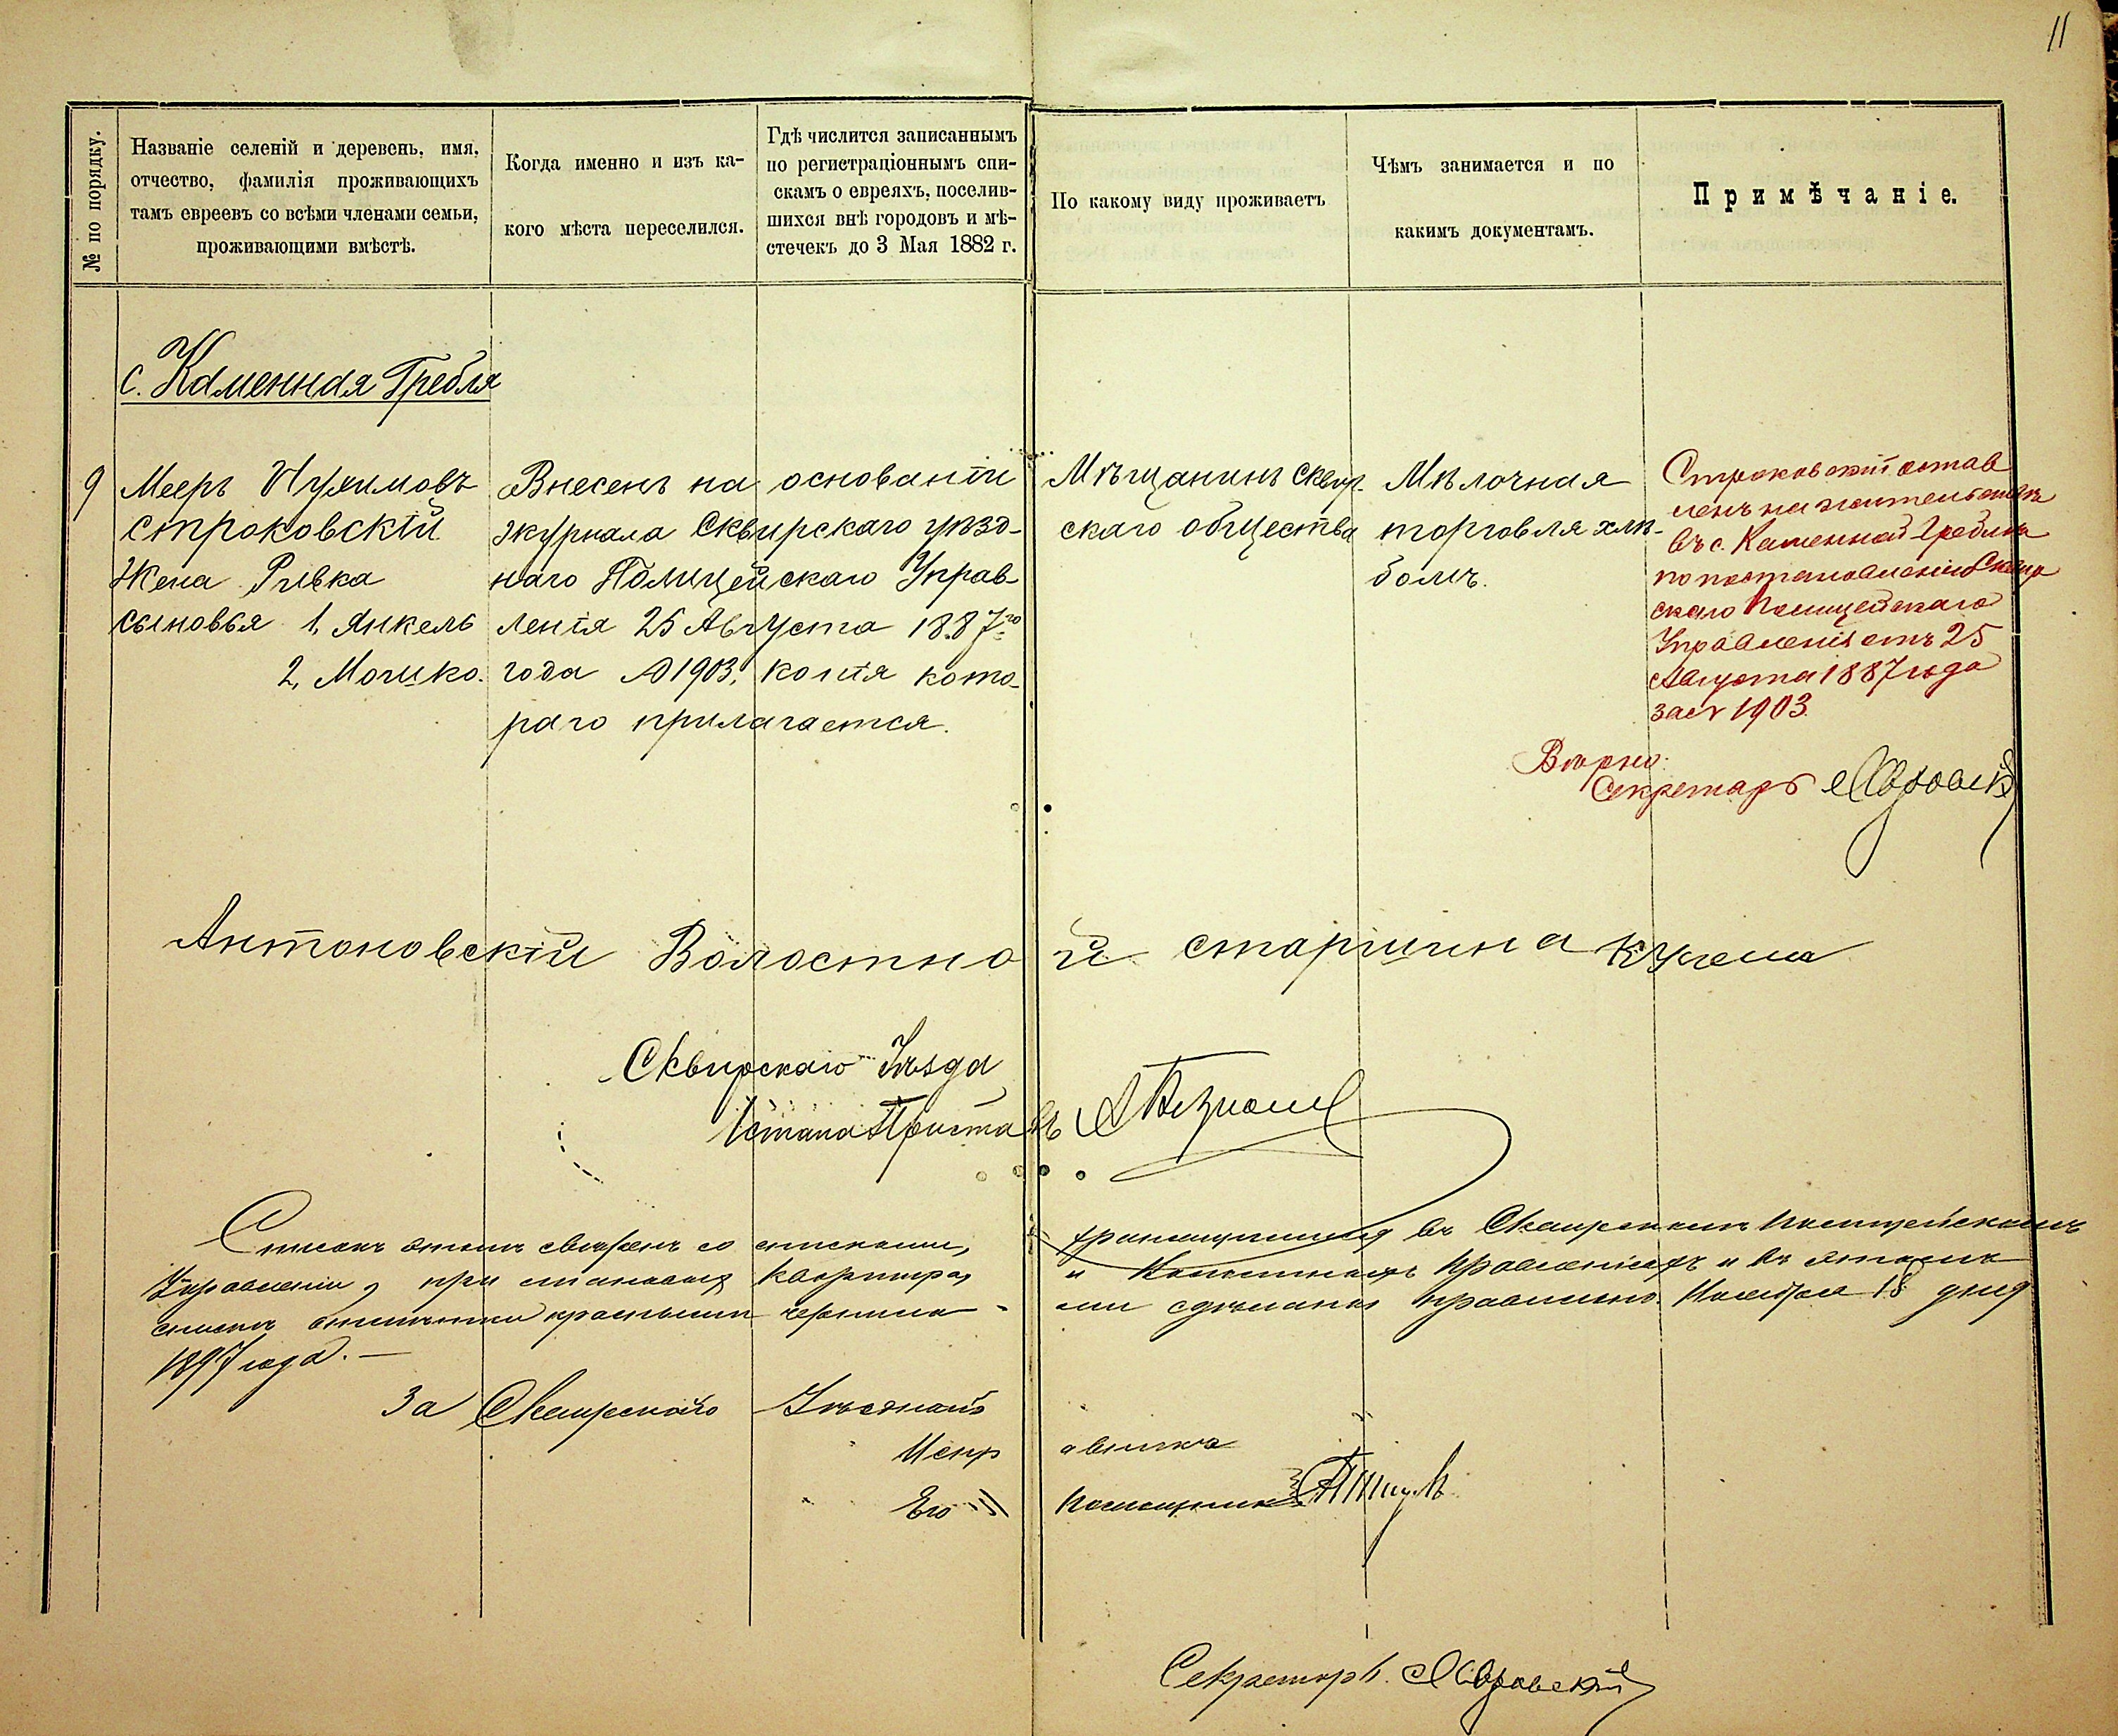 11
№ по порядку.
Названіе селеній и деревень, имя,
отчество, фамилія проживающихъ
тамъ евреевъ со всѣми членами семьи,
проживающими вмѣстѣ.
Когда именно и изъ ка-
кого мѣста переселился.
Гдѣ числится записаннымъ
по регистраціоннымъ спи-
скамъ о евреяхъ, поселив-
шихся внѣ городовъ и мѣ-
стечекъ до 3 Мая 1882 г.
По какому виду проживаетъ
Чѣмъ занимается и по
какимъ документамъ.
Примѣчаніе.
с. Каменная Гребля
9
Мееръ Нухимовъ
Строковскій
Жена Ривка
сыновья 1, Янкель
2, Мошко.
Внесенъ на основаніи
журнала Сквирскаго уѣзд-
наго Полицейскаго Управ-
ленія 25 Августа 1887го
года № 1903, копія кото-
раго прилагается.
Мѣщанинъ Сквир-
скаго общества
Мѣлочная
торговля хлѣ-
бомъ.
Строковскій остав
ленъ на жительствѣ
въ с. Каменной Греблѣ
по постановленію Сквир
скаго Полицейскаго
Управленія отъ 25
Августа 1887 года
за № 1903.
Вѣрно:
Секретарь
Антоновскій Волостной старшина
Сквирскаго Уѣзда
1 стана Приставъ
Списокъ этотъ свѣренъ со списками, хранящимися въ Сквирскомъ Полицейскомъ
Управленіи, при становыхъ квартирахъ и Волостныхъ Правленіяхъ и въ этомъ
списки отмѣтки красными чернила-ми сдѣланы правильно. Ноября 18 дня
1897 года.
За Сквирскаго Уѣзднаго
Исправника
Его Помощникъ
Секретарь